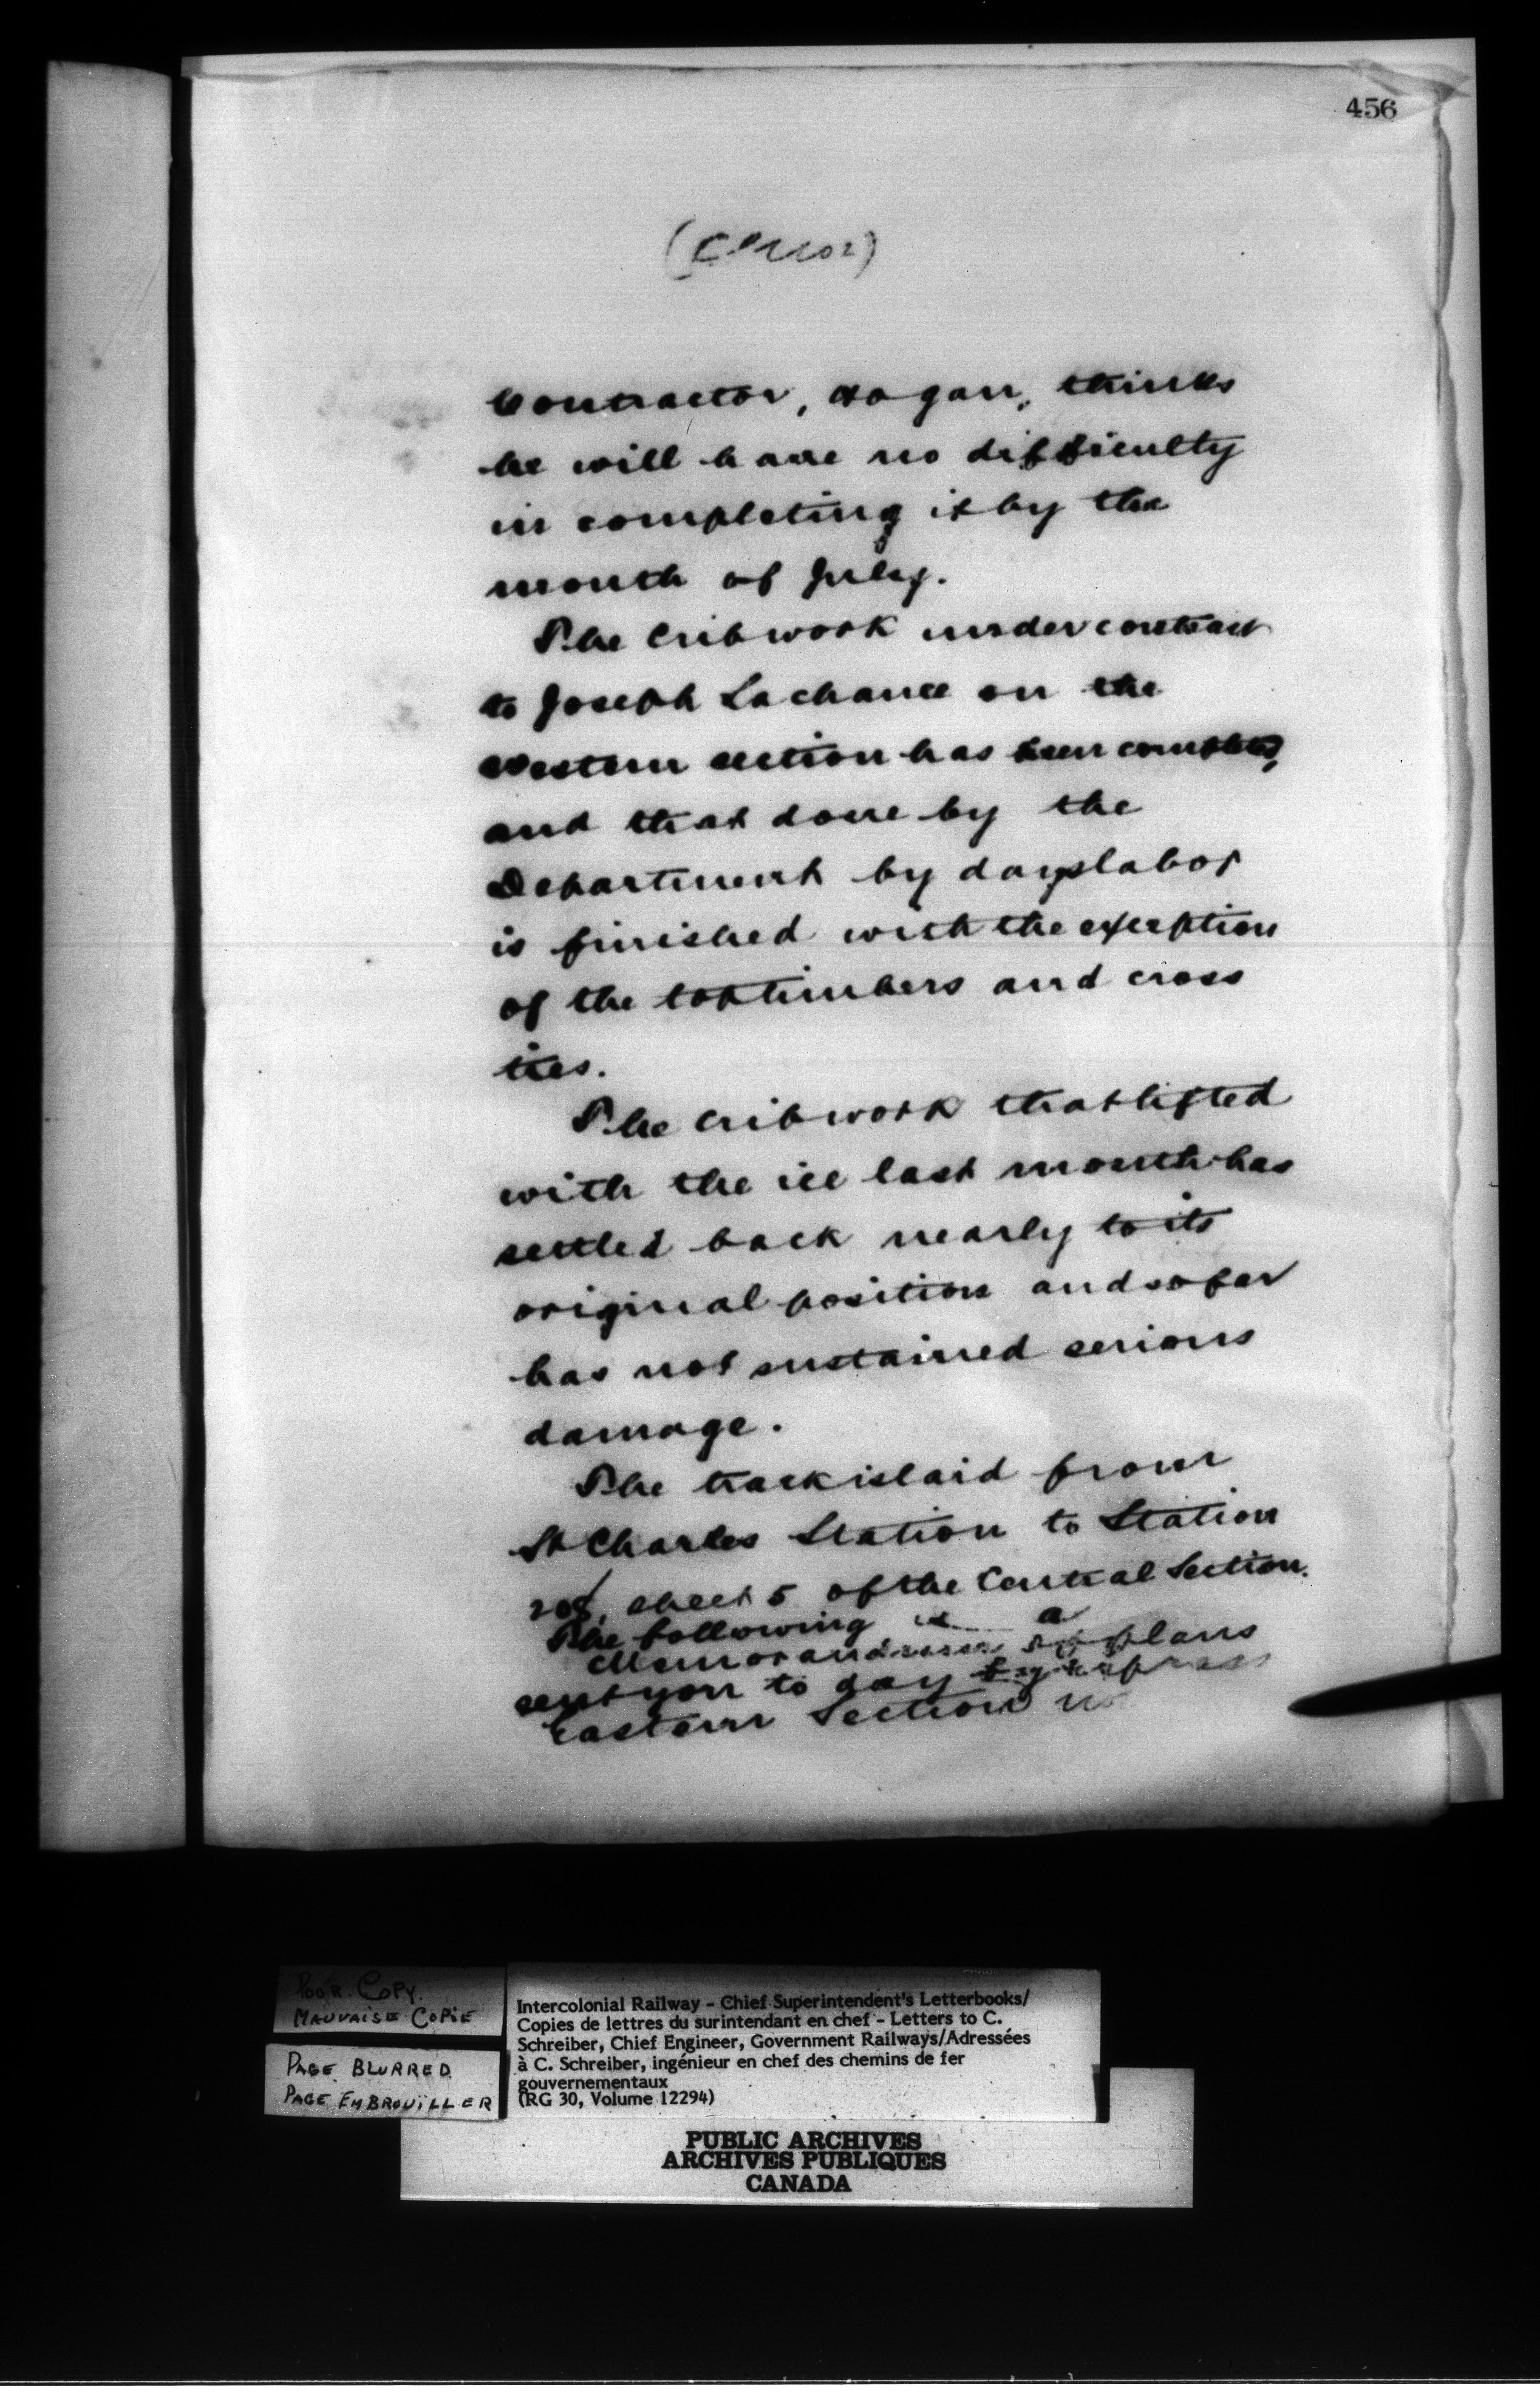 456
Contractor, Hogan, thinks
he will have no difficulty
in completing it by the
month of July.
The Cribwork under contract
to Joseph Lachance on the
Western section has been completed,
and that done by the
Department by days labor
is finished with the exception
of the top timbers and cross
ties.
The cribwork that lifted
with the ice last month has
settled back nearly to its
original position and so far
has not sustained serious
damage.
The track is laid from
St Charles Station to Station
sheet 5 of the Central Section.
The following is a
Memorandum of plans
sent you to day by express
Eastern Section
POOR COPY.
MAUVAISE COPIE
PAGE BLURRED
PAGE EMBROUILLER
Intercolonial Railway - Chief Superintendent's Letterbooks/
Copies de lettres du surintendant en chef - Letters to C.
Schreiber, Chief Engineer, Government Railways/Adressées
à C. Schreiber, ingénieur en chef des chemins de fer
gouvernementaux
(RG 30, Volume 12294)
PUBLIC ARCHIVES
ARCHIVES PUBLIQUES
CANADA